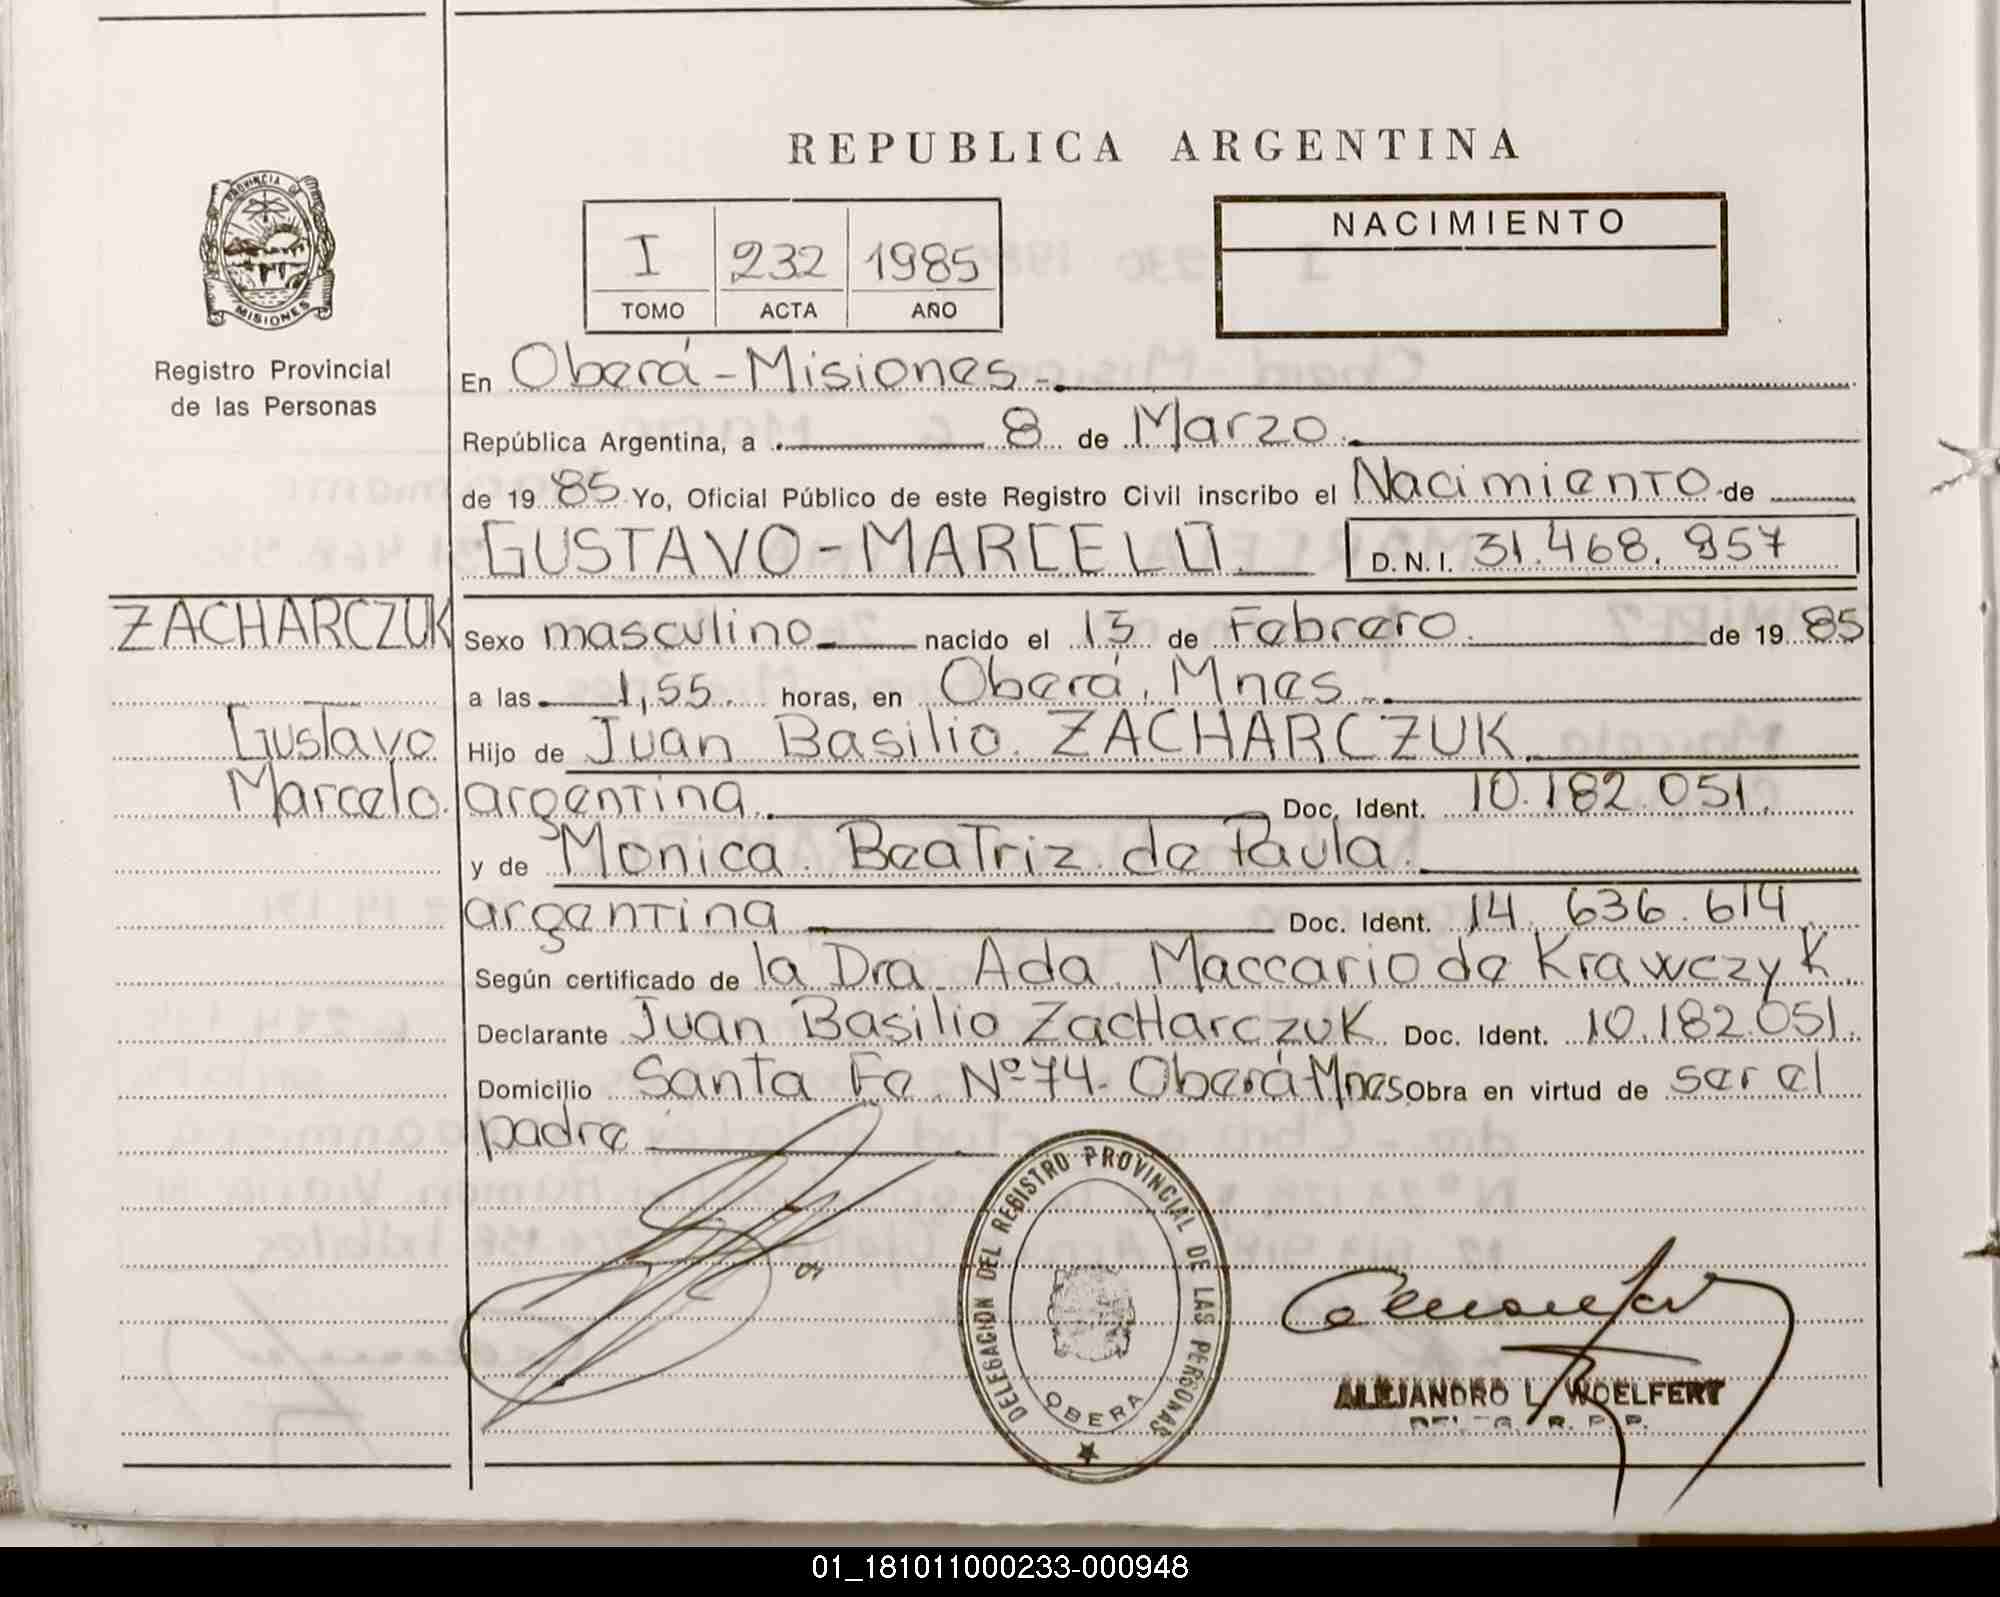 REPUBLICA ARGENTINA
PROVINCIA DE
MISIONES
Registro Provincial
de las Personas
I 232 1985
TOMO ACTA AÑO
NACIMIENTO
En Oberá - Misiones -
República Argentina, a 8 de Marzo
de 19 85 Yo, Oficial Público de este Registro Civil inscribo el Nacimiento de
GUSTAVO - MARCELO D.N.I. 31.468.957
ZACHARCZUK
Gustavo
Marcelo.
Sexo masculino nacido el 13 de Febrero de 19 85
a las 1,55 horas, en Oberá, Mnes.
Hijo de Juan Basilio ZACHARCZUK
argentina Doc. Ident. 10.182.051.
y de Monica Beatriz de Paula.
argentina Doc. Ident. 14.636.614
Según certificado de la Dra Ada Maccario de Krawczyk
Declarante Juan Basilio Zacharczuk Doc. Ident. 10.182.051.
Domicilio Santa Fe Nº 74 - Oberá - Mnes Obra en virtud de ser el
padre
DELEGACION DEL REGISTRO PROVINCIAL DE LAS PERSONAS
OBERA
ALEJANDRO L. WOELFERT
DELEG. R. P. P.
01_181011000233-000948